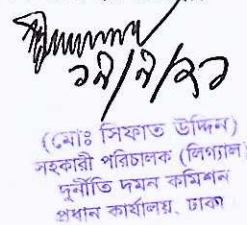 ১৯/৯/২১
(মোঃ সিফাত উদ্দিন)
সহকারী পরিচালক (লিগ্যাল)
দুর্নীতি দমন কমিশন
প্রধান কার্যালয়, ঢাকা